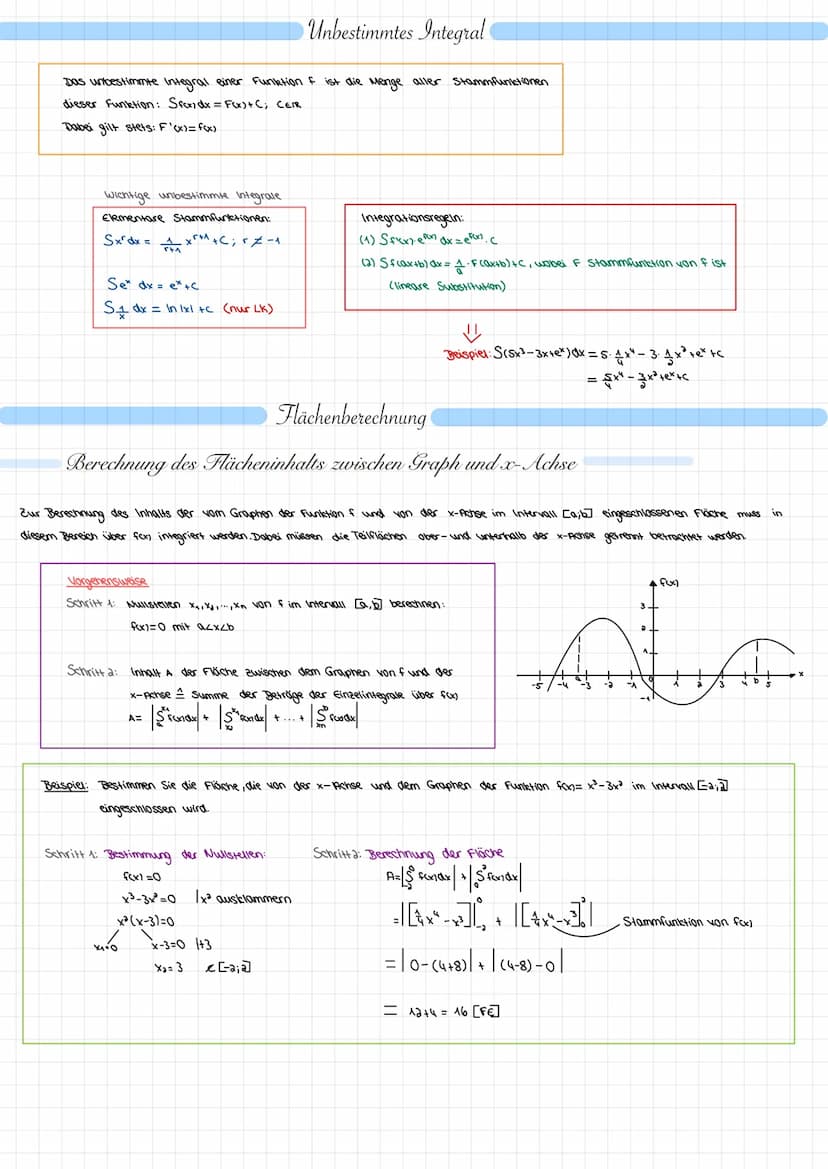 Unbestimmtes Integral
Das unbestimmte Integral einer Funktion f ist die Menge aller Stammfunktionen
dieser Funktion: ∫f(x)dx = F(x)+C; C∈ℝ
Dabei gilt stets: F'(x)=f(x)
Wichtige unbestimmte Integrale
Elementare Stammfunktionen:
∫x^r dx = 1/(r+1) x^(r+1) +C; r ≠ -1
∫e^x dx = e^x+C
∫1/x dx = ln|x| +C (nur LK)
Integrationsregeln:
(1) ∫f'(x)·e^f(x) dx = e^f(x)·C
(2) ∫f(ax+b)dx = 1/a·F(ax+b)+C, wobei F Stammfunktion von f ist
(lineare Substitution)
⇓
Beispiel: ∫(5x³-3x+e^x)dx = 5·1/4x⁴ - 3·1/2x²+e^x+C
= 5/4x⁴ - 3/2x²+e^x+C
Flächenberechnung
Berechnung des Flächeninhalts zwischen Graph und x-Achse
Zur Berechnung des Inhalts der vom Graphen der Funktion f und von der x-Achse im Intervall [a;b] eingeschlossenen Fläche muss in
diesem Bereich über f(x) integriert werden. Dabei müssen die Teilflächen ober- und unterhalb der x-Achse getrennt betrachtet werden.
Vorgehensweise
Schritt 1: Nullstellen x₁,x₂,...,xₙ von f im Intervall [a,b] berechnen:
f(x)=0 mit a<x<b
Schritt 2: Inhalt A der Fläche zwischen dem Graphen von f und der
x-Achse ≙ Summe der Beträge der Einzelintegrale über f(x)
A= |∫f(x)dx| + |∫f(x)dx| + ... + |∫f(x)dx|
f(x)
3
2
1
-5 -4 a -3 -2 -1 0 1 2 3 4 b 5 x
-1
Beispiel: Bestimmen Sie die Fläche, die von der x-Achse und dem Graphen der Funktion f(x)= x³-3x² im Intervall [-2;2]
eingeschlossen wird.
Schritt 1: Bestimmung der Nullstellen:
f(x)=0
x³-3x²=0 |x² ausklammern
x²(x-3)=0
x₁=0 x-3=0 |+3
x₂=3 ∉[-2;2]
Schritt 2: Berechnung der Fläche
A=|∫f(x)dx| + |∫f(x)dx|
=|[1/4x⁴-x³]| + |[1/4x⁴-x³]| Stammfunktion von f(x)
=|0-(4+8)| + |(4-8)-0|
= 12+4 = 16 [FE]